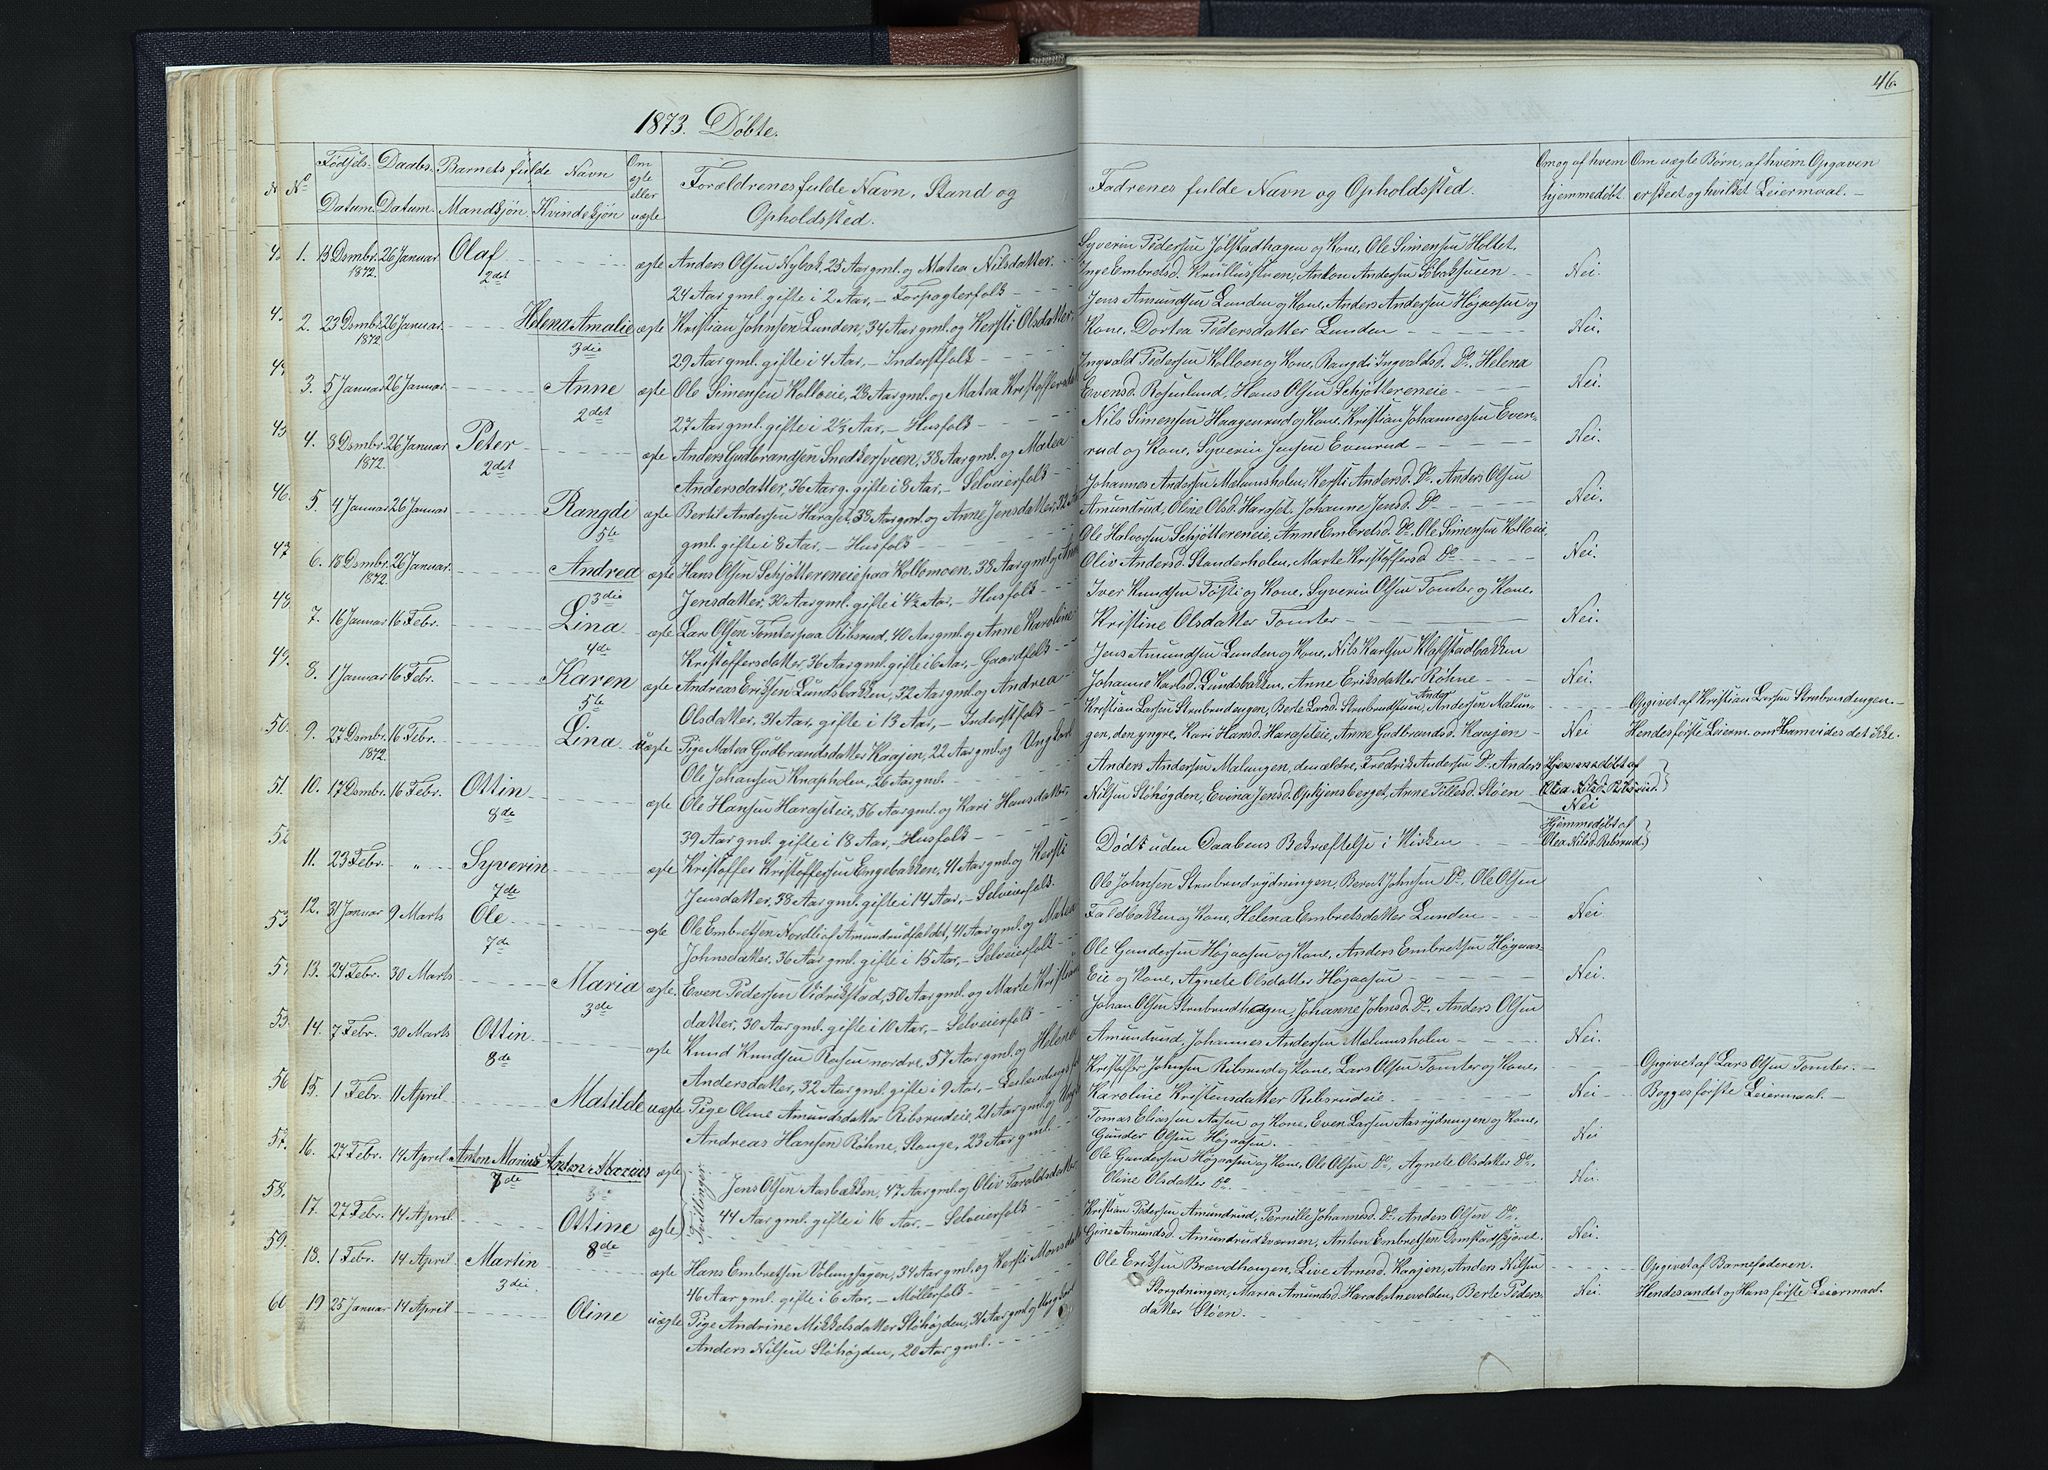 46.
1873. Döbte.
No
Födsels-Datum.
Daabs-Datum.
Barnets fulde Navn
Mandkjön. Kvindekjön
Om ægte eller uægte
Forældrenes fulde Navn, Stand og Opholdssted.
Fadrenes fulde Navn og Opholdssted.
Om og af hvem hjemmedöbt
Om uægte Börn, af hvem Opgaven er skeet og hvilket Leiermaal.
1. 13 Dsmbr. 1872. 26 Januar Olaf 2det ægte Anders Olsen Nybot, 25 Aar gml. og Matea Nilsdatter.
24 Aar gml. gifte i 2 Aar, - Forpagterfolk
Syverin Pedersen Jölstadhagen og Kone, Ole Simensen Holtet.
Inge Embretsd. Knullusstuen, Anton Andersen Sobaksveen Nei.
2. 23 Dsmbr. 1872. 26 Januar. Helena Amalie 3die ægte Kristian Johnsen Lunden, 34 Aar gml. og Kersti Olsdatter.
29 Aar gml. gifte i 4 Aar, - Inderstfolk
Jens Amundsen Lunden og Kone, Anders Andersen Högaasen og
Kone, Dortea Pedersdatter Lunden Nei.
3. 5 Januar 26 Januar Anne 2det ægte Ole Simensen Kolloeie, 28 Aar gml. og Matea Kristoffersdat
27 Aar gml. gifte i 2½ Aar, - Husfolk
Ingvald Pedersen Kolloen og Kone, Rangdi Ingvaldsd. Do, Helena
Evensd. Rosenlund, Hans Olsen Schjöttereneie Nei.
45 4. 3 Dsmbr. 1872. 26 Januar Peter 2det ægte Anders Gudbrandsen Snedkersveen, 38 Aar gml. og Matea
Andersdatter, 36 Aar g. gifte i 8 Aar, - Selveierfolk
Nils Simensen Haagenrud og Kone, Kristian Johannessen Even-
rud og Kone, Syverin Jensen Evenrud Nei.
46. 5. 4 Januar 26 Januar Rangdi 5te ægte Bertil Andersen Haraset, 38 Aar gml. og Anne Jensdatter, 32 Aar
gml. gifte i 8 Aar, - Husfolk
Johannes Andersen Melumsholen, Kersti Andersd. Do Anders Olsen
Amundrud, Oline Olsd. Haraset, Johanne Jensd. Do Nei.
47 6. 18 Dsmbr. 1872 26 Januar. Andrea 3die ægte Hans Olsen Schjöttereneie paa Kollomoen, 38 Aar gml. og
Jensdatter, 30 Aar gml. gifte i 4½ Aar, - Husfolk
Ole Halvorsen Schjöttereneie, Anne Embretsd. Do, Ole Simensen Kolloeie,
Oliv Andersd. Standerholen, Marte Kristoffersd. Do Nei.
48. 7. 16 Januar 16 Febr. Lina 4de ægte Lars Olsen Tomter paa Ribsrud, 40 Aar gml. og Anne Karoline
Kristoffersdatter, 36 Aar gml. gifte i 6 Aar, - Gaardfolk
Iver Knudsen Töfti og Kone, Syverin Olsen Tomter og Kone,
Kristine Olsdatter Tomter Nei.
49. 8. 1 Januar 16 Febr. Karen 5te ægte Andreas Eriksen Lundsbakken, 32 Aar gml. og Andrea
Olsdatter, 31 Aar, gifte i 13 Aar, - Inderstfolk
Jens Amundsen Lunden og Kone, Nils Karlsen Klafstadbakken
Johanne Karlsd. Lundsbakken, Anne Eriksdatter Röhne Nei.
50. 9. 27 Dsmbr. 1872. 16 Febr. Lina uægte Pige Matea Gudbrandsdatter Kaajen, 22 Aar gml. og Ungkarl
Ole Johansen Knapholen, 26 Aar gml.
Kristian Larsen Strubrudengen, Berte Larsd. Strubrudsveen, Anders Andersen Malun-
gen, den yngre, Kari Hansd. Haraseteie, Anne Gudbrandsd. Kaajen Nei
Opgivet af Kristian Larsen Strubrudengen.
Hendes förste Leierm. om Ham vides det ikke.
51. 10. 17 Dsmbr. 16 Febr. Ottin 8de ægte Ole Hansen Haraseteie, 56 Aar gml. og Kari Hansdatter,
39 Aar gml. gifte i 18 Aar, Husfolk
Anders Andersen Malungen, den ældre, Fredrik Andersen Do, Anders
Nilsen Stöhögden, Evina Jensd. Opkjensberget, Anne Tillesd. Stöen
Hjemmedöbt af
Olea Nilsd. Ribsrud.
Nei
52 11. 23 Febr. " Syverin 7de ægte Kristoffer Kristoffersen Engebakken, 41 Aar gml. og Kersti
Jensdatter, 38 Aar gml. gifte i 14 Aar, - Selveierfolk.
Död uden Daabens Bekræftelse i Kirken
Hjemmedöbt af
Olea Nilsd. Ribsrud.
53 12. 31 Januar 9 Marts Ole 7de ægte Ole Embretsen Nordli af Amundrudfaldet, 41 Aar gml. og Matea
Johnsdatter, 36 Aar gml. gifte i 15 Aar, - Selveierfolk
Ole Johnsen Strubrudrydningen, Bernt Johnsen Do, Ole Olsen
Faldbakken og Kone, Helena Embretsdatter Lunden Nei
13. 24 Febr. 30 Marts Maria 3de ægte. Even Pedersen Vidrikstad, 50 Aar gml. og Marte Kristians
datter, 30 Aar gml. gifte i 10 Aar, - Selveierfolk
Ole Gundersen Högaasen og Kone, Anders Embretsen Högaas-
Eie og Kone, Agnete Olsdatter Högaasen Nei.
55. 14. 7 Febr. 30 Marts Ottin 8de ægte Knud Knudsen Rosen nordre, 57 Aar gml. og Helena
Andersdatter, 32 Aar gml. gifte i 9 Aar,
Johan Olsen Strubrudhagen, Johanne Johnsd. Do, Anders Olsen
Amundrud, Johannes Andersen Melumsholen Nei.
56 15. 1 Febr. 11 April Matilde uægte Pige Oline Amundsdatter Ribsrudeie, 21 Aar gml. og
Andreas Hansen Röhne, Stange, 23 Aar gml.
Kristoffer Johnsen Ribsrud og Kone, Lars Olsen Tomter og Kone,
Karoline Kristensdatter Ribsrudeie. Nei
Opgivet af Lars Olsen Tomter.
Begges förste Leiermaal.
57. 16. 27 Febr. 14 April Anton Marius 7de Anton Marius ægte Tvillinger Jens Olsen Aasbakken, 47 Aar gml. og Oliv Taraldsdatter
44 Aar gml. gifte i 16 Aar. - Selveierfolk
Tomas Eliassen Aasen og Kone, Even Larsen Aasrydningen og Kone,
Gunder Olsen Högaasen. Nei
58. 17. 27 Febr. 14 April Ottine 8de ægte
Ole Gundersen Högaasen og Kone, Ole Olsen Do, Agnete Olsdatter Do,
Oline Olsdatter Do. Nei.
59. 18. 1 Febr. 14 April Martin 3die ægte Hans Embretsen Volungshagen, 34 Aar gml. og Kersti Monsdat
46 Aar gml. gifte i 6 Aar, - Möllerfolk
Kristian Pedersen Amundrud, Pernille Johannesd. Do, Anders Olsen Do,
Gine Amundsd. Amundrudkværnen, Anton Embretsen Domstadskjöret. Nei.
60 19 25 Januar 14 April Oline uægte Pige Andrine Mikkelsdatter Stöhögden, 31 Aar gml. og Ungkarl
Anders Nilsen Stöhögden, 20 Aar gml.
Ole Eriksen Brændhaugen, Live Arnesd. Kaajen, Anders Nilsen
Storydningen, Maria Amundsd. Harabetnevolden, Berte Peders-
datter Stöen. Nei.
Opgivet af Barnefaderen.
Hendes andet og Hans förste Leiermaal.